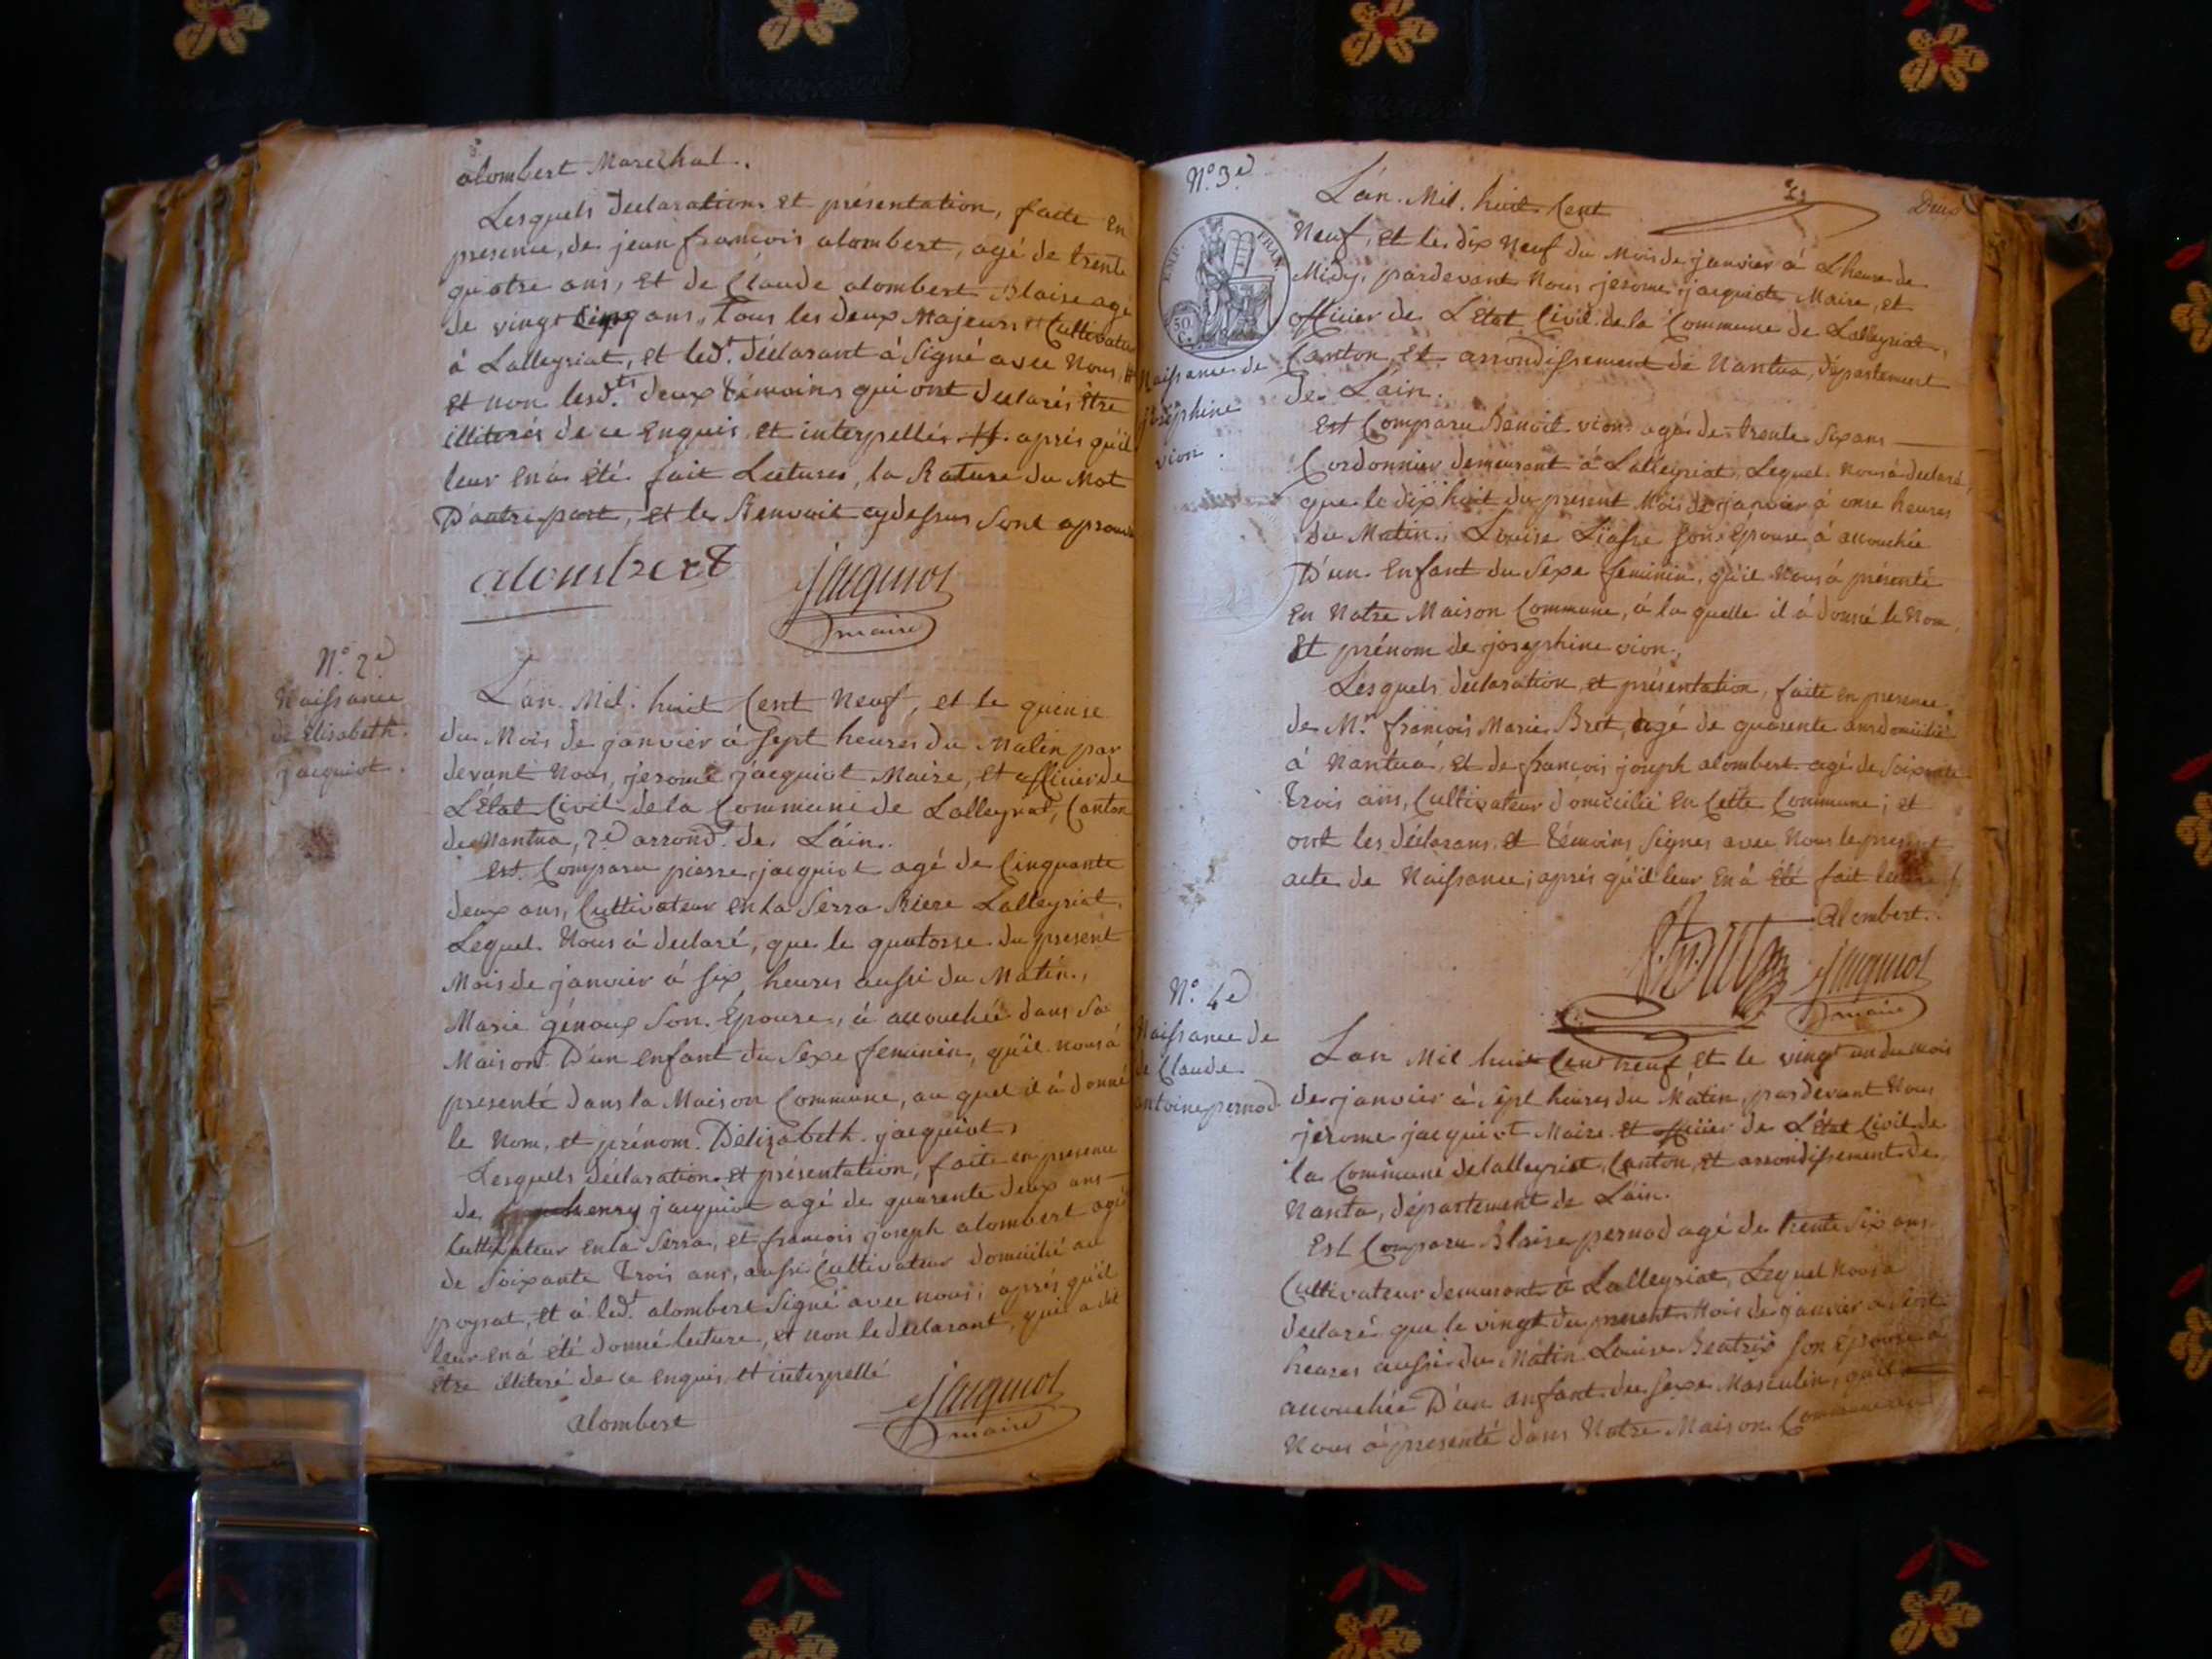 alombert Marechal.
Lesquels declarations et présentation, faite En
presence, de jean françois alombert, agé de trente
quatre ans, et de Claude alombert Blaise agé
de vingt Cinq ans, Tous les deux Majeurs et Cultivateurs
à Lalleyriat, et led.t déclarant à signé avec Nous,
et non lesd.ts deux témoins qui ont declarés être
illiterés de ce enquis et interpellés. H. aprés qu'il
leur En a été fait Lectures, la Rature du Mot
D'autre part, et le Renvoit cydessus sont aprouvé
alombert
jacquiot
maire
N.° 2.e
Naissance
de Elisabeth.
jacquiot.
L'an. Mil. huit Cent Neuf, et le quinse
du Mois de janvier à sept heures du Matin par
devant Nous, jerome jacquiot Maire, et officier de
L'état Civil de la Commune de Lalleyriat, Canton
de Nantua, 2.e arrond.t de L'ain.
Est Comparu pierre jacquiot agé de Cinquante
deux ans, Cultivateur en la Serra Riere Lalleyriat,
Lequel. Nous à declaré, que le quatorse du present
Mois de janvier à six heures aussi du Matin,
Marie génoux Son. Epouse, à accouchée dans Sa
Maison D'un enfant du Sexe feminin, qu'il nous à
presenté dans la Maison Commune, au quel il à donné
le Nom, et prénom. D'élizabeth. jacquiot,
Lesquels déclaration et présentation, faite en presence
de henry jacquiot agé de quarente deux ans
Cultivateur en la Serra, et françois joseph alombert agé
de Soixante Trois ans, aussi Cultivateur domicilié au
poysat, et à led.t alombert Signé avec nous; aprés qu'il
leur en à été donné lecture, et non le declarant, qui a dit
Etre illiteré de ce enquis et interpellé
alombert
jacquiot
maire
N.° 3.e
Deux
EMP. FRAN.
50 C.
Naissance de
joséphine
vion.
L'an. Mil. huit Cent
Neuf, et les dix Neuf du Mois de janvier à L'heure de
Midy, pardevant Nous jerome jacquiot Maire, et
officier de L'Etat Civil de la Commune de Lalleyriat,
Canton, et arrondissement de Nantua, département
de L'ain.
Est Comparu Benoit vion agé de trente Six ans
Cordonnier demeurant à Lalleyriat, Lequel. Nous à declaré,
que le dix huit du présent Mois de janvier à onse heures
du Matin, Louise Liasse son épouse à accouchée
D'un Enfant du Sexe feminin, qu'il Nous à présenté
En Notre Maison Commune, à la quelle il à donné le Nom,
Et prénom de josephine vion.,
Lesquels declaration et présentation, faite en presence
de M.r françois Marie Brot, agé de quarente ans domicilié
à Nantua, et de françois joseph alombert agé de Soixante
Trois ans, Cultivateur domicilié en Cette Commune; et
ont les déclarans et témoins signés avec Nous le present
acte de Naissance; aprés qu'il leur En à été fait lecture
Alombert.
jacquiot
maire
N.° 4.e
Naissance de
de Claude
antoine pernod
L'an Mil huit Cent neuf et le vingt un du mois
de janvier à sept heures du Matin, pardevant Nous
jerome jacquiot Maire et officier de L'état Civil de
la Commune de lalleyriat, Canton, et arrondissement de
Nanta, département de L'ain.
Est Comparu Blaise pernod agé de trente Six ans
Cultivateur demeurant à Lalleyriat, Lequel Nous à
declaré que le vingt du present Mois de janvier à sept
heures aussi du Matin Louise Beatrix son épouse à
accouchée D'un anfant du sexe Masculin, qu'il
Nous à presenté dans Notre Maison Commune